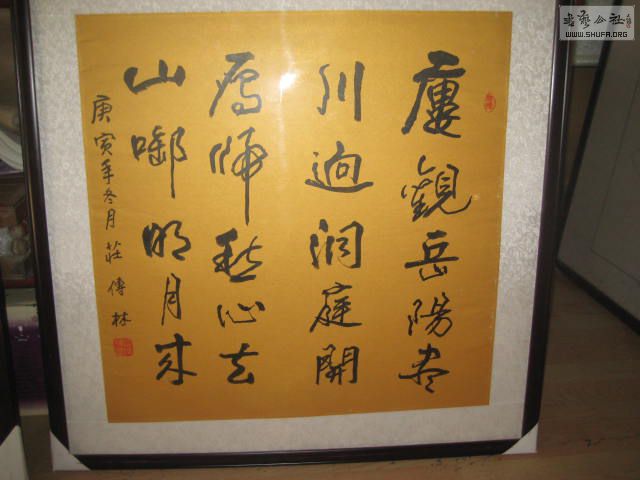 廔觀岳陽盡
川迥洞庭開
雁愁心去
山啣明月来
庚寅年冬月莊傳林
書藝公社
WWW.SHUFA.ORG